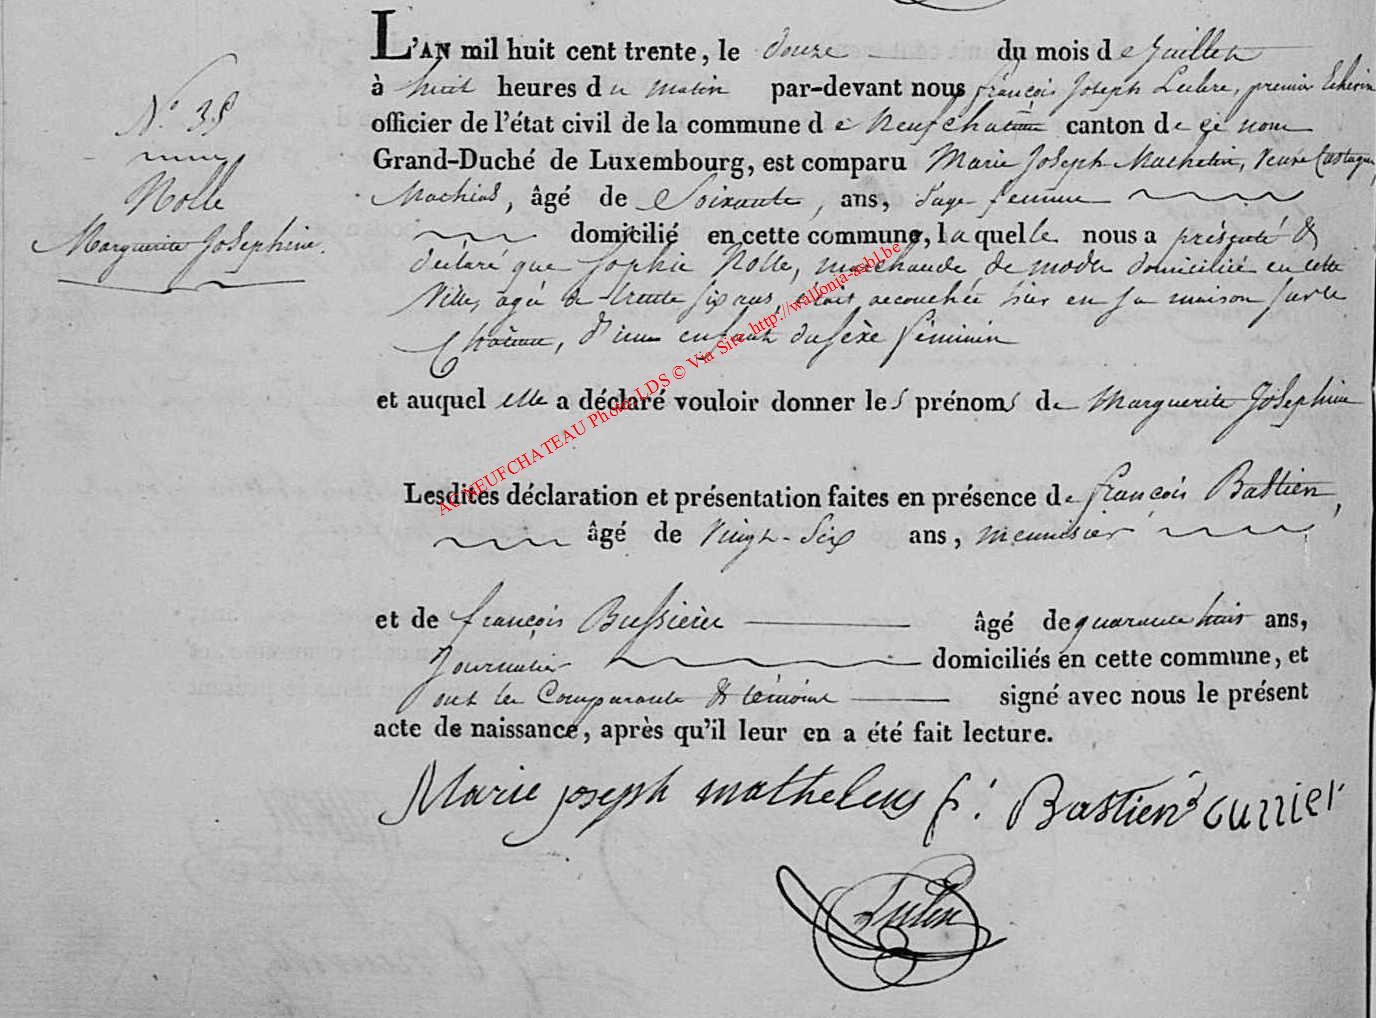 N.° 35
Nolle
Marguerite Josephine.
L'AN mil huit cent trente, le douze du mois de Juillet
à huit heures du matin par-devant nous françois Joseph premier Echevin
officier de l'état civil de la commune de Neufchateau canton de ce nom
Grand-Duché de Luxembourg, est comparu Marie Joseph Mathelin, Veuve
Mathias, âgé de Soixante, ans, Sage femme
domicilié en cette commune, laquelle nous a présenté &
déclaré que Sophie Nolle, marchande de mode domiciliée en cette
Ville, agée de trente six ans, etoit accouchée hier en sa maison sur le
Château, d'une enfant du sexe féminin
et auquel elle a déclaré vouloir donner les prénoms de Marguerite Josephine
Lesdites déclaration et présentation faites en présence de françois Bastien,
âgé de Vingt-Six ans, menuisier
et de françois Bussierer âgé de quarante huit ans,
Journalier domiciliés en cette commune, et
ont les Comparante & témoins signé avec nous le présent
acte de naissance, après qu'il leur en a été fait lecture.
Marie joseph mathelens f. Bastien
ACNEUFCHATEAU Photo LDS © Via Site http://wallonia-asbl.be